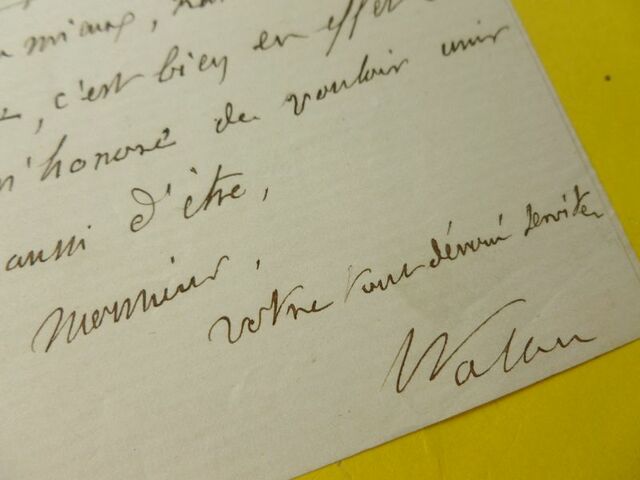 mieux,
, c'est bien en effet
m'honoré de vouloir unir
aussi d'être,
Monsieur,
votre tout dévoué servite
Wallon